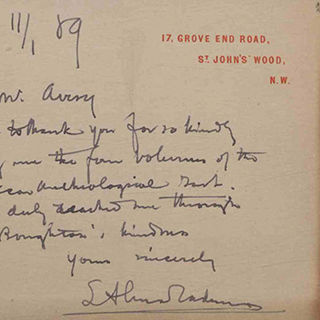 11/1 89
17, GROVE END ROAD,
ST. JOHN'S WOOD,
N.W.
Mr. Avery
to thank you for so kindly
me the four volumes of the
Archæological Inst.
duly reached me through
Boughton's kindness
yours sincerely
L Alma Tadema